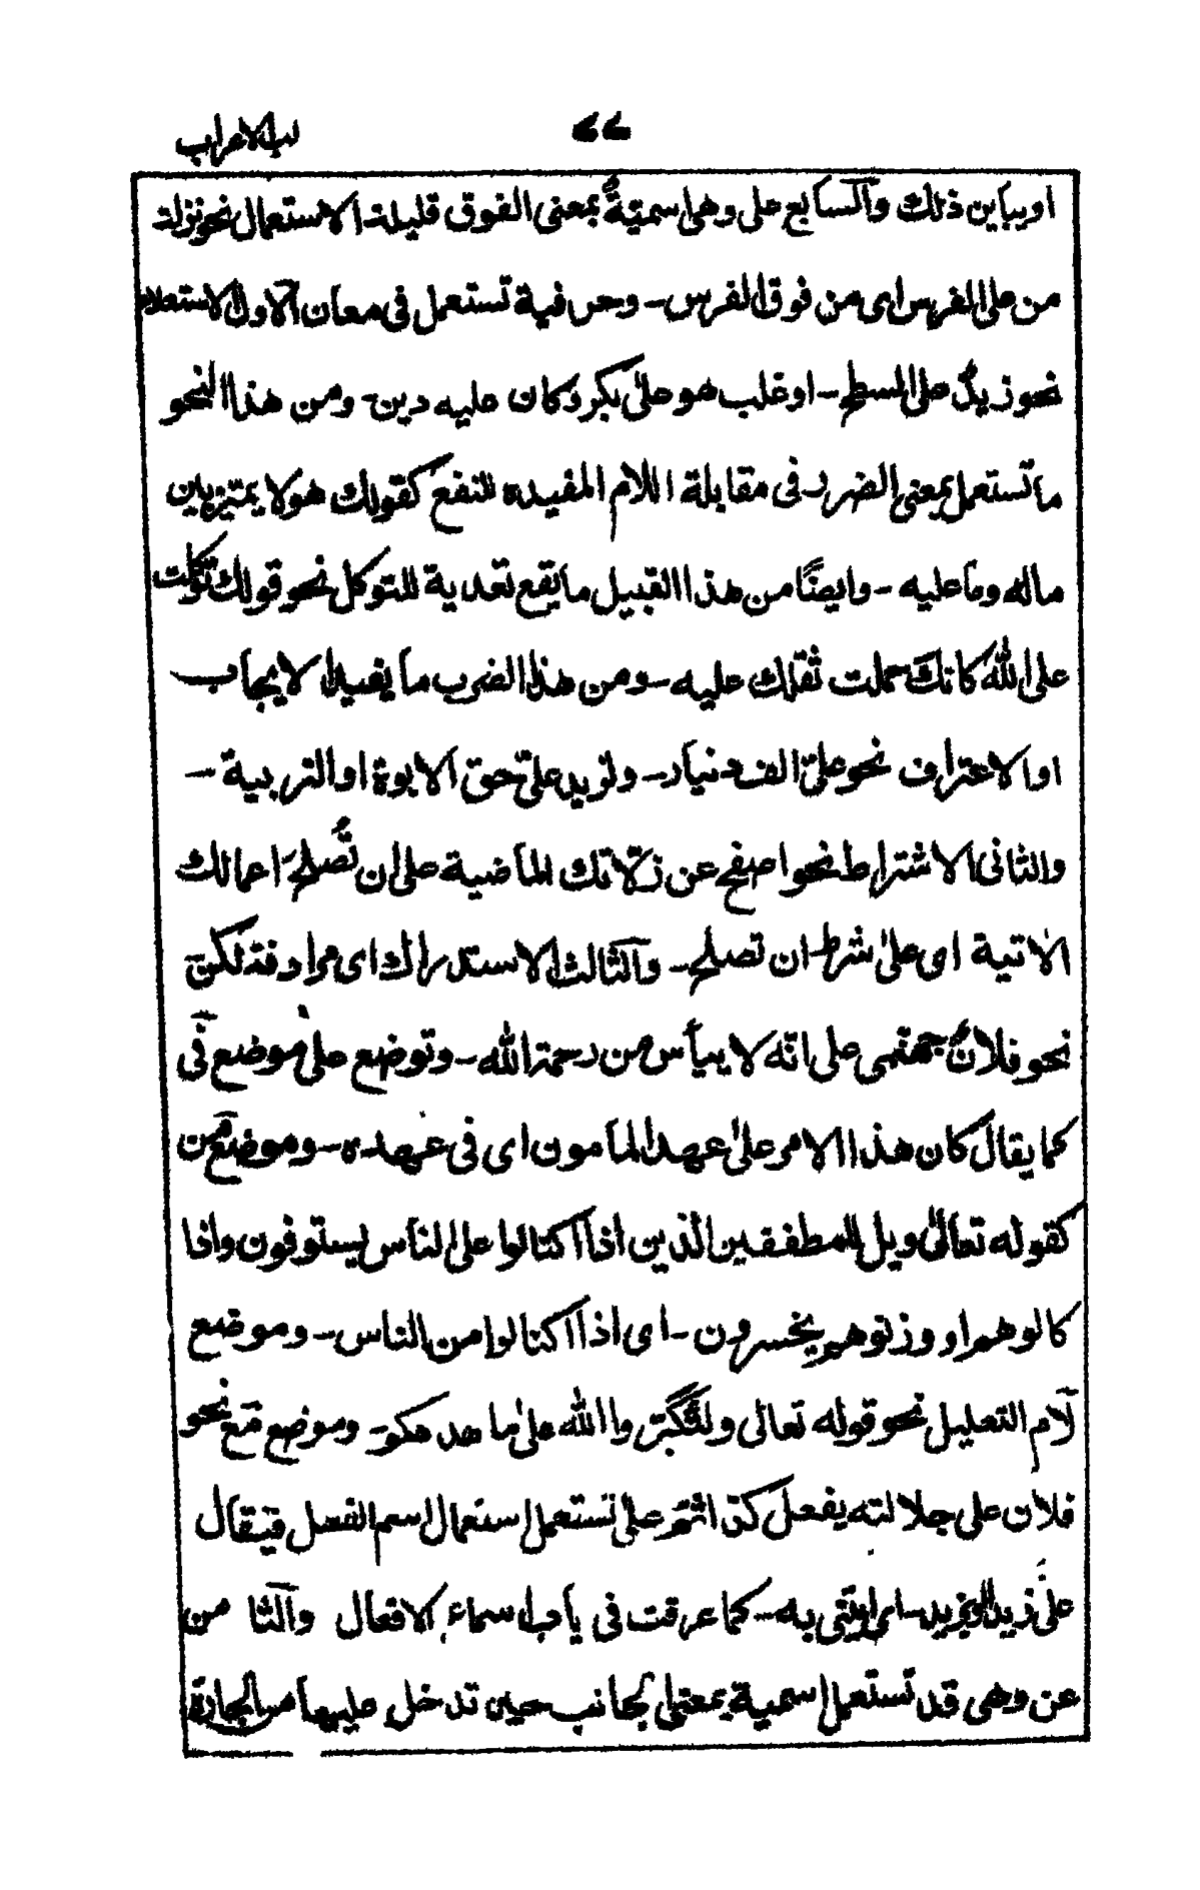 لب الاعراب
٧٧
او يباين ذلك والسابع على وهى اسميةٌ بمعنى الفوق قليلة الاستعمال نحو نزلت
من على الفرس اى من فوق الفرس - وحرفية تستعمل فى معان الاول الاستعلاء
نحو زيدٌ على السطح - او غلب هو على بكر وكان عليه دين - ومن هذا النحو
ما تستعمل بمعنى الضرر فى مقابلة اللام المفيده للنفع كقولك هو لا يمتيز بين
ماله وما عليه - وايضًا من هذا القبيل ما يقع تعدية للتوكل نحو قولك توكلت
على الله كانك حملت ثقلك عليه - ومن هذا الضرب ما يفيد الايجاب
او الاعتراف نحو علىّ الف دنيار - ولزيد علىّ حق الابوة او التربية -
والثانى الاشتراط نحو اصفح عن زلاتك الماضية على ان تُصلحَ اعمالك
الاتية اى على شرط ان تصلح - والثالث الاستدراك اى مرادفة لكن
نحو فلانٌ جهنمى على انّه لا ييأس من رحمة الله - وتوضع على موضع فى
كما يقال كان هذا الامر على عهد المأمون اى فى عهده - وموضع من
كقوله تعالى ويل للمطففين الذين اذا اكتالوا على الناس يستوفون واذا
كالوهم او وزنوهم يخسرون - اى اذا اكتالوا من الناس - وموضع
لام التعليل نحو قوله تعالى ولتكبّروا الله على ما هدىكم - وموضع مع نحو
فلان على جلالته يفعل كذا ثم على تستعمل استعمال اسم الفعل فيقال
على زيد اليزيد - اى ايتنى به - كما عرفت فى باب اسماء الافعال والثامن
عن وهى قد تستعمل اسمية بمعنى الجانب حين تدخل عليها من الجارة